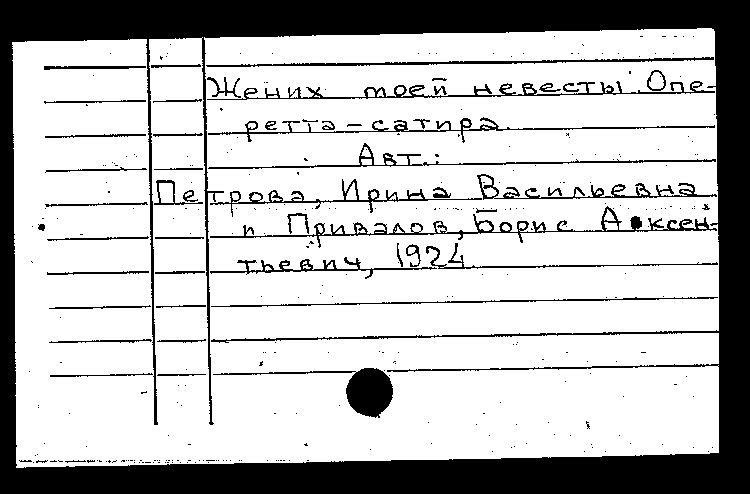 Жених моей невесты. Опе-
ретта-сатира.
Авт.:
Петрова, Ирина Васильевна
и Привалов, Борис Авксен-
тьевич, 1924